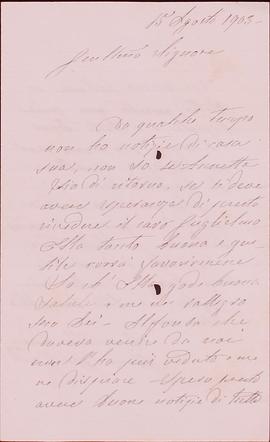 15 Agosto 1903 -
Gentilmo Signore
Da qualche tempo
non ho notizie di casa
sua, non so se
sia di ritorno, se si deve
avere speranza di presto
rivedere il caro Guglielmo
Ella tanto buona e gen-
tile vorrà favorirmene
So ch'Ella gode buona
salute e me ne rallegro
con Lei - Alfonso che
doveva venire da noi
non l'ho più veduto e me
ne dispiace - Spero presto
avere buone notizie di tutto